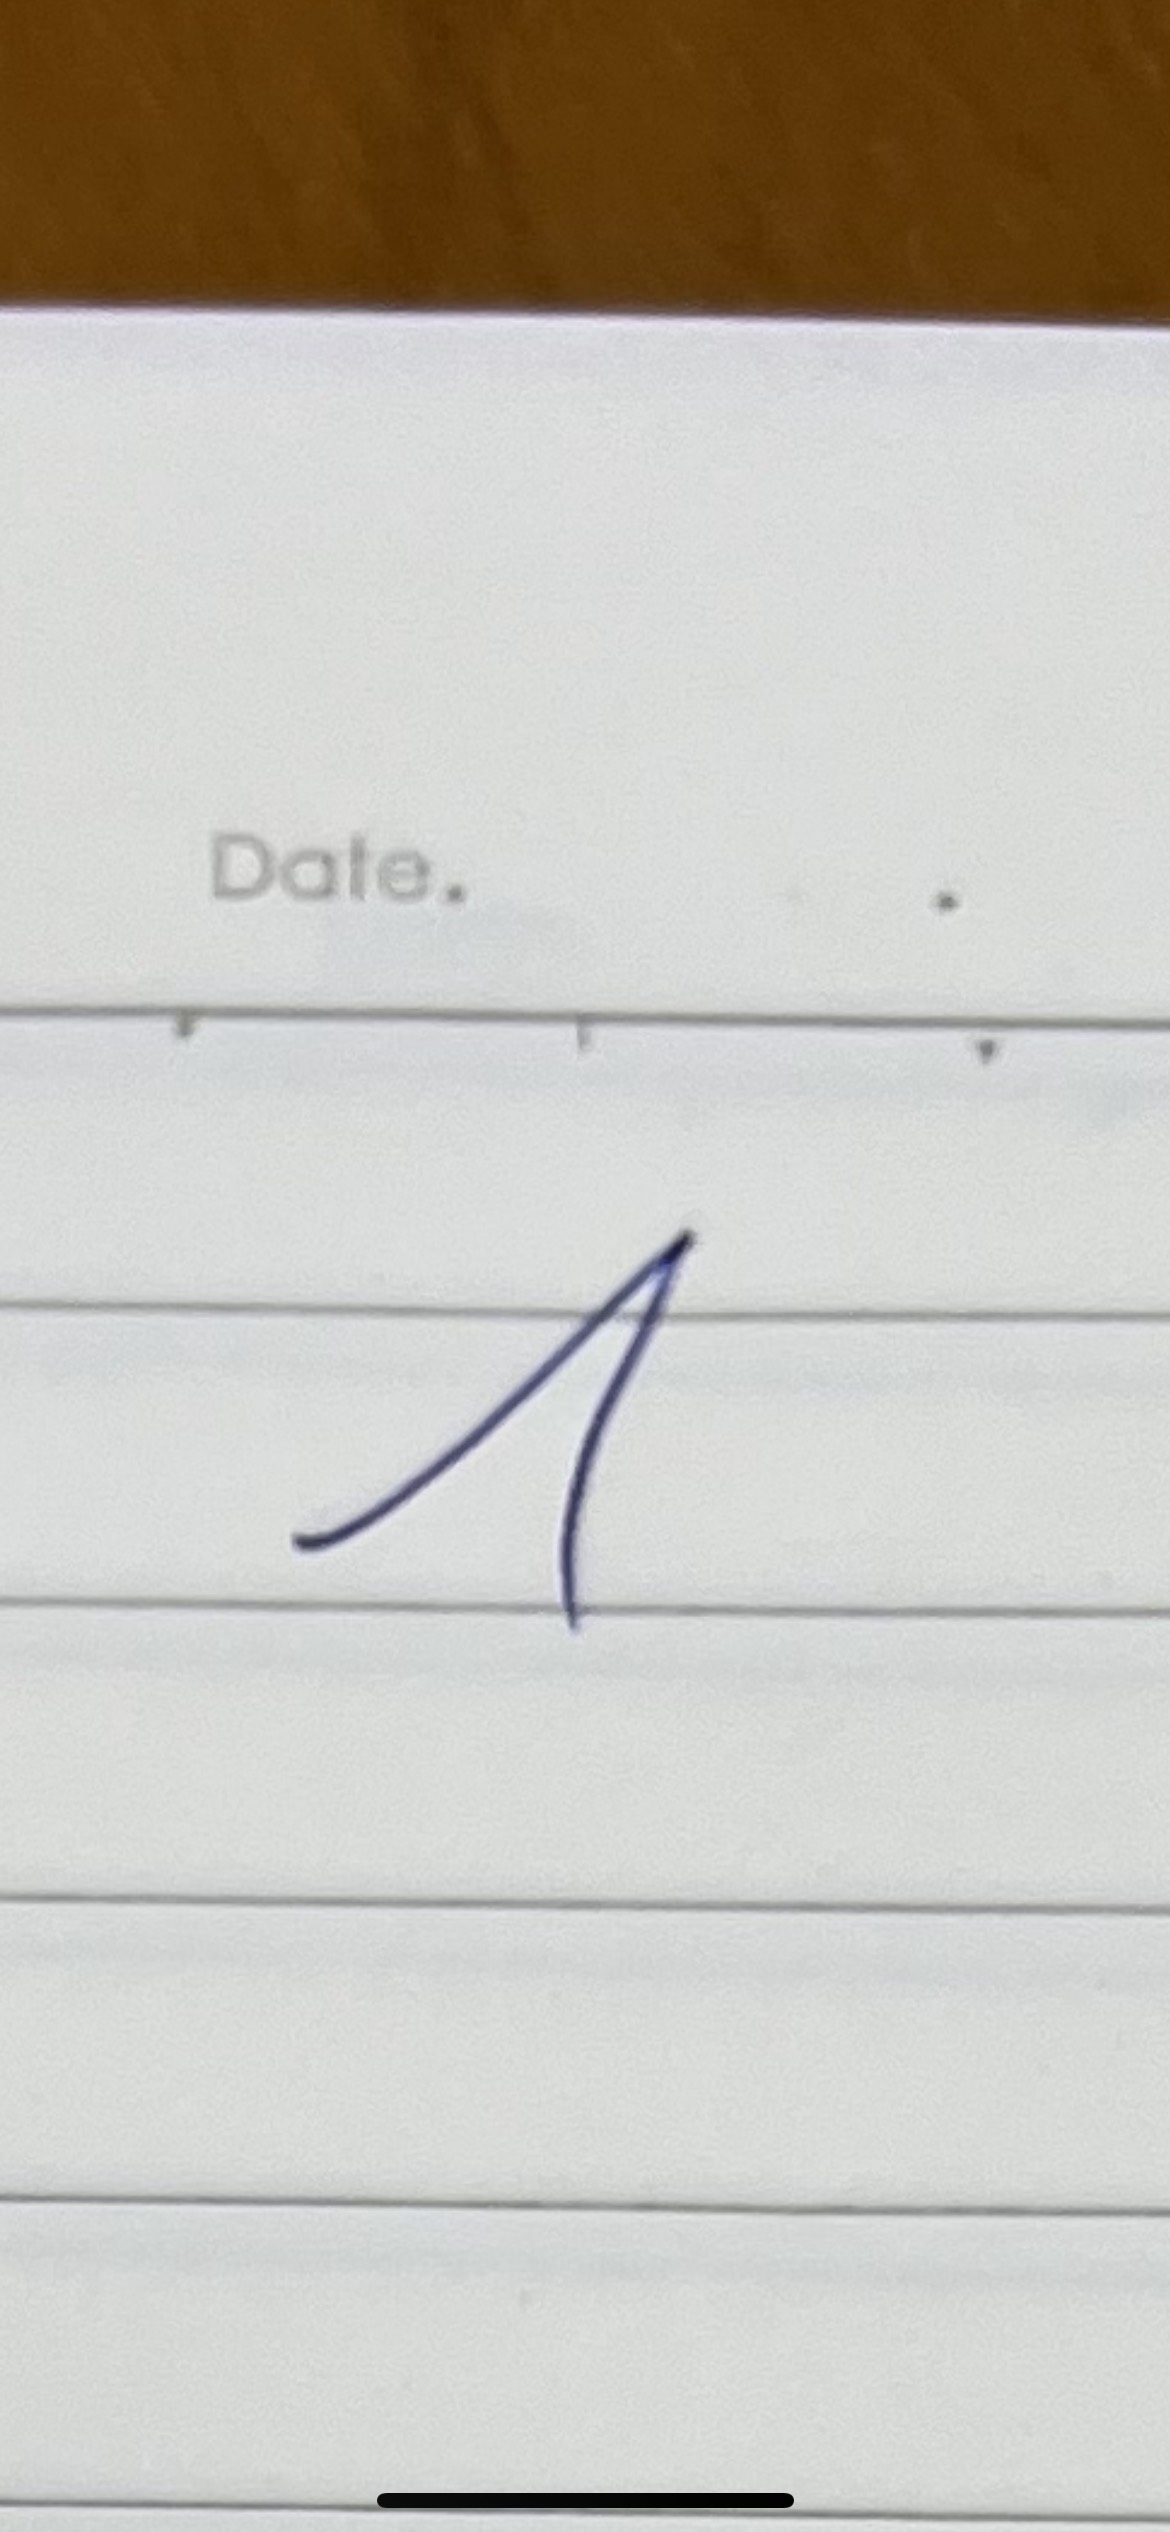 Date.
1